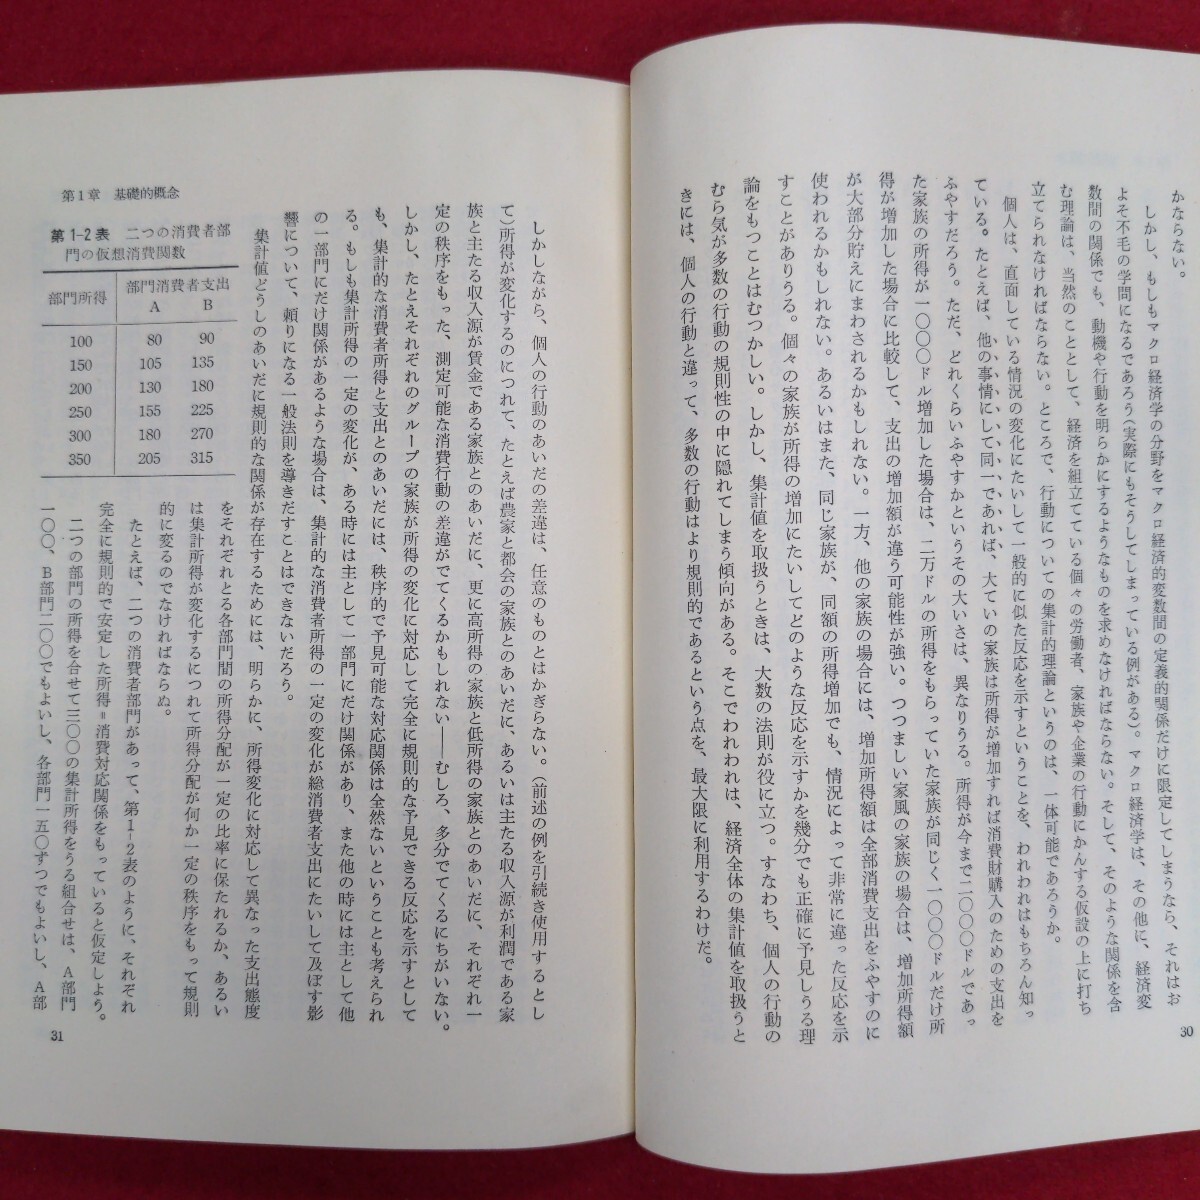 かならない。
しかし、もしもマクロ経済学の分野をマクロ経済的変数間の定義的関係だけに限定してしまうなら、それはお
よそ不毛の学問になるであろう(実際にもそうしてしまっている例がある)。マクロ経済学は、その他に、経済変
数間の関係でも、動機や行動を明らかにするようなものを求めなければならない。そして、そのような関係を含
む理論は、当然のこととして、経済を組立てている個々の労働者、家族や企業の行動にかんする仮設の上に打ち
立てられなければならない。ところで、行動についての集計的理論というのは、一体可能であろうか。
個人は、直面している情況の変化にたいして一般的に似た反応を示すということを、われわれはもちろん知っ
ている。たとえば、他の事情にして同一であれば、大ていの家族は所得が増加すれば消費財購入のための支出を
ふやすだろう。ただ、どれくらいふやすかというその大いさは、異なりうる。所得が今まで二〇〇〇ドルであっ
た家族の所得が一〇〇〇ドル増加した場合は、二万ドルの所得をもらっていた家族が同じく一〇〇〇ドルだけ所
得が増加した場合に比較して、支出の増加額が違う可能性が強い。つつましい家風の家族の場合は、増加所得額
が大部分貯えにまわされるかもしれない。一方、他の家族の場合には、増加所得額は全部消費支出をふやすのに
使われるかもしれない。あるいはまた、同じ家族が、同額の所得増加でも、情況によって非常に違った反応を示
すことがありうる。個々の家族が所得の増加にたいしてどのような反応を示すかを幾分でも正確に予見しうる理
論をもつことはむつかしい。しかし、集計値を取扱うときは、大数の法則が役に立つ。すなわち、個人の行動の
むら気が多数の行動の規則性の中に隠れてしまう傾向がある。そこでわれわれは、経済全体の集計値を取扱うと
きには、個人の行動と違って、多数の行動はより規則的であるという点を、最大限に利用するわけだ。
30
しかしながら、個人の行動のあいだの差違は、任意のものとはかぎらない。(前述の例を引続き使用するとし
て)所得が変化するのにつれて、たとえば農家と都会の家族とのあいだに、あるいは主たる収入源が利潤である家
族と主たる収入源が賃金である家族とのあいだに、更に高所得の家族と低所得の家族とのあいだに、それぞれ一
定の秩序をもった、測定可能な消費行動の差違がでてくるかもしれない――むしろ、多分でてくるにちがいない。
しかし、たとえそれぞれのグループの家族が所得の変化に対応して完全に規則的な予見できる反応を示すとして
も、集計的な消費者所得と支出とのあいだには、秩序的で予見可能な対応関係は全然ないということも考えられ
る。もしも集計所得の一定の変化が、ある時には主として一部門にだけ関係があり、また他の時には主として他
の一部門にだけ関係があるような場合は、集計的な消費者所得の一定の変化が総消費者支出にたいして及ぼす影
響について、頼りになる一般法則を導きだすことはできないだろう。
集計値どうしのあいだに規則的な関係が存在するためには、明らかに、所得変化に対応して異なった支出態度
をそれぞれとる各部門間の所得分配が一定の比率に保たれるか、あるい
は集計所得が変化するにつれて所得分配が何か一定の秩序をもって規則
的に変るのでなければならぬ。
たとえば、二つの消費者部門があって、第1-2表のように、それぞれ
完全に規則的で安定した所得=消費対応関係をもっていると仮定しよう。
二つの部門の所得を合せて三〇〇の集計所得をうる組合せは、A部門
一〇〇、B部門二〇〇でもよいし、各部門一五〇ずつでもよいし、A部
第1章 基礎的概念
第1-2表 二つの消費者部
門の仮想消費関数
部門所得 部門消費者支出
A B
100 80 90
150 105 135
200 130 180
250 155 225
300 180 270
350 205 315
31